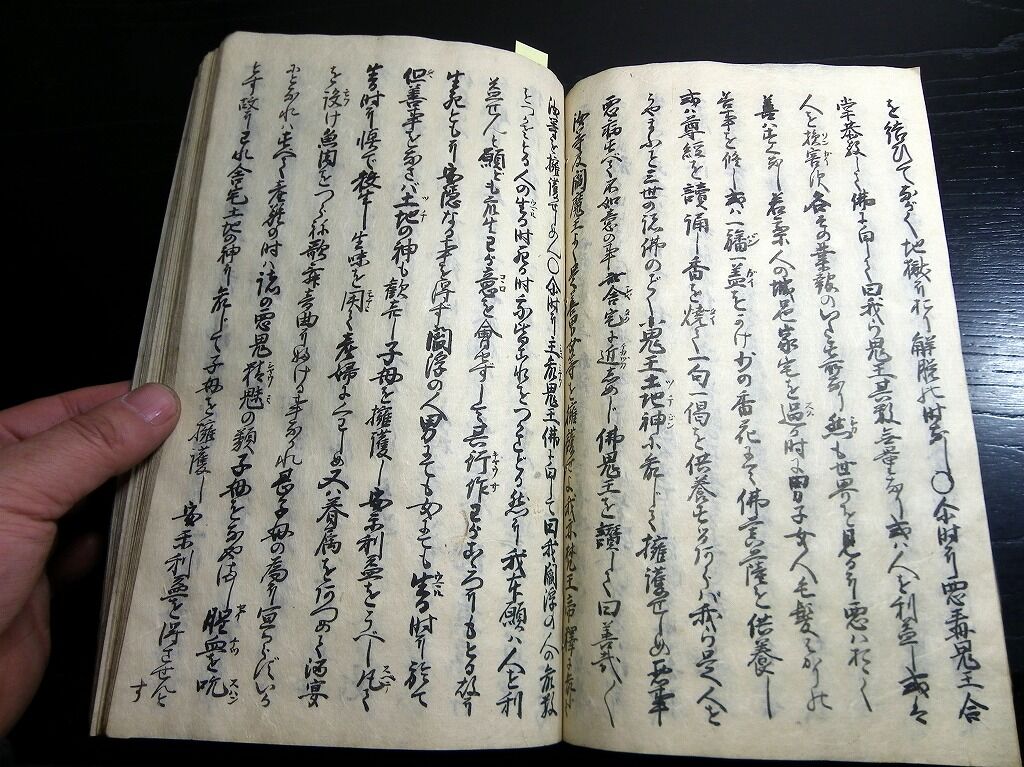 を結ひてながく地獄におり解脱の时なし〇尓时に悪毒鬼王合
掌恭敬して佛に白して曰我ら鬼王其数無量なり或ハ人を利益し或ハ
人を損害次各その業報のいたす所なり然も世界を見るに悪ハおほく
善ハすくなし若来人の城邑家宅を過る时に男子女人毛髪ばかりの
善事を修し或ハ一旛一蓋をかけ少の香花にて佛菩薩を供養し
或ハ尊經を讀誦し香を燒て一句一偈を供養する所あらバ我ら是人を
うやまふこと三世の諸佛のごとく小鬼王土地神に命して擁護せしめ悪事
悪病すべて不如意の事此舎宅に近づけじ佛鬼王を讃して曰善哉〱
汝等及閻魔よく善男女等を擁護せよ我亦梵王帝釋に命して
汝等を擁護せしめん〇尓时に主命鬼王佛に白して曰我閻浮の人の命数
をつかさどる人の生る时死る时我皆これをつかさどる然に我本願ハ人を利
益せんと願ども衆生わが意を會せずして其行作わがこゝろにもとる故に
生死ともに安隠なる事を得ず閻浮の人男にても女にても生る时に於て
但善事をなさバ土地の神も歓喜し子母を擁護し安楽利益をうべし
生る时に慎で殺生し生味を用て産婦にくわしめ又ハ眷属をあつめて酒宴
を設け魚肉をつらね歌舞音曲にふける事なかれ甚子母の為に宜からずいかん
となれハすべて産難の时ハ諸の悪鬼精魅の類子母をなやまし腥血を吃
とす故にわれ舎宅土地の神に命して子母を擁護し安楽利益を得させんと
す